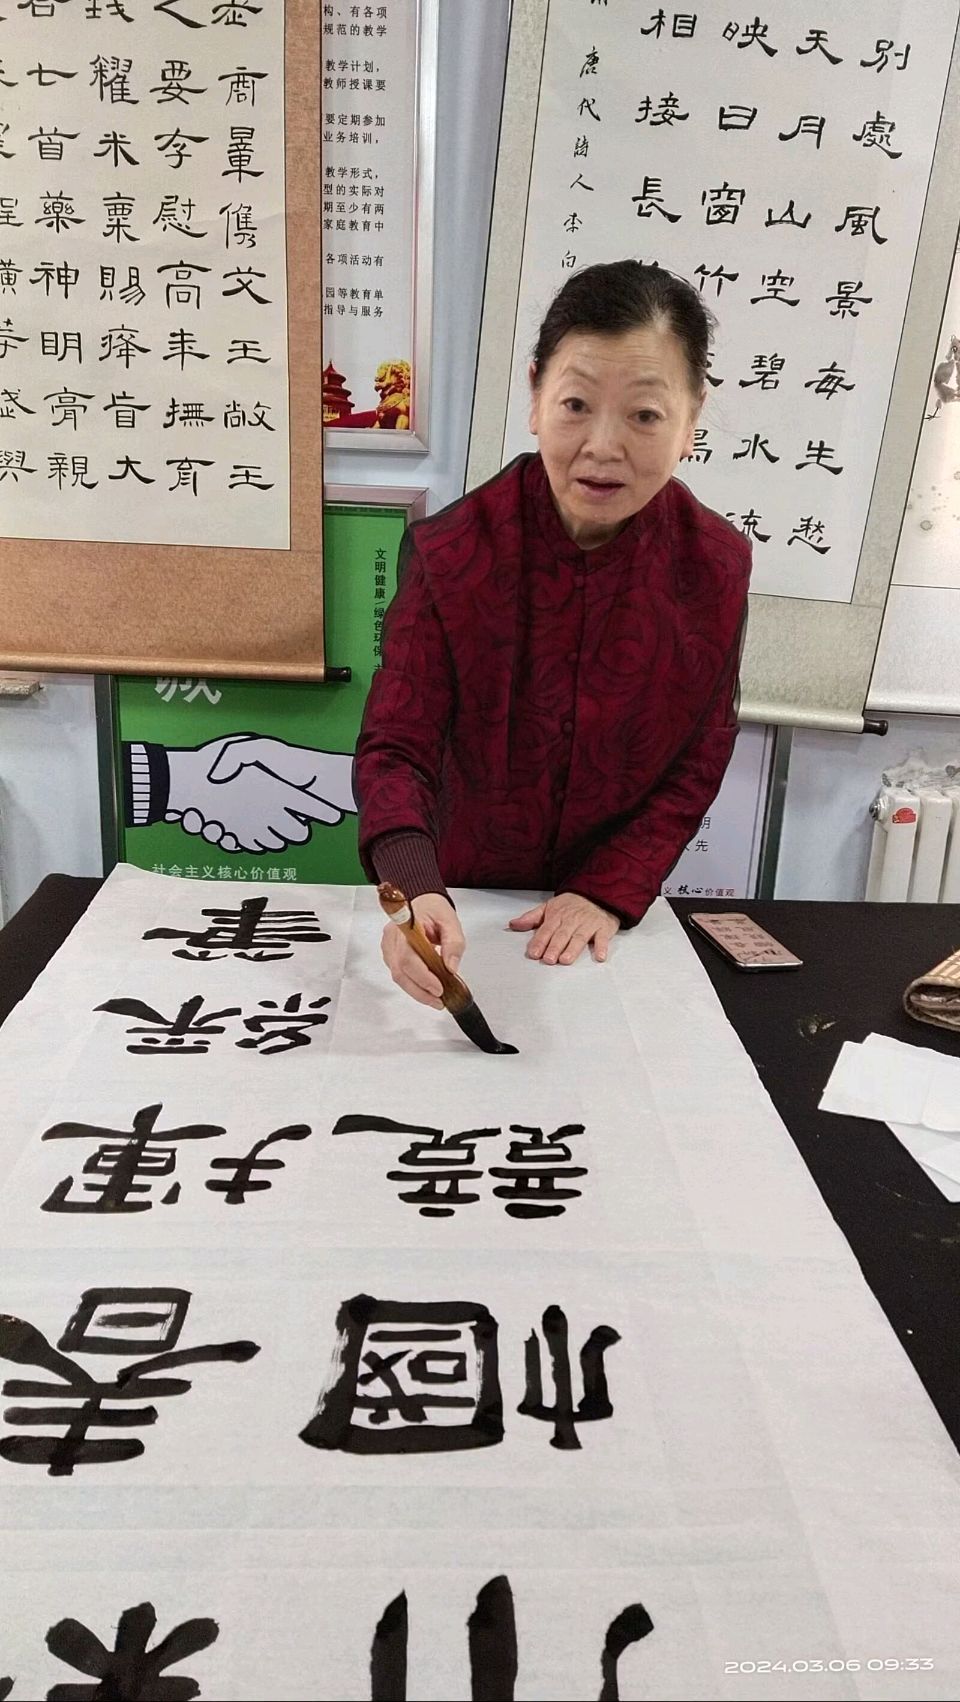 老商量儁艾王敞王
之要存慰高年撫育
錢糴米粟賜癃盲大
合七首藥神明膏親
构、有各项
规范的教学
教学计划，
教师授课要
要定期参加
业务培训，
教学形式，
型的实际对
期至少有两
家庭教育中
各项活动有
园等教育单
指导与服务
別處風景每生愁
天月山空碧水流
映日窗竹
相接長
唐代詩人李白
文明健康 绿色环保
诚
社会主义核心价值观
明
人先
义 核心价值观
巾幗競
春揮綵筆
2024.03.06 09:33